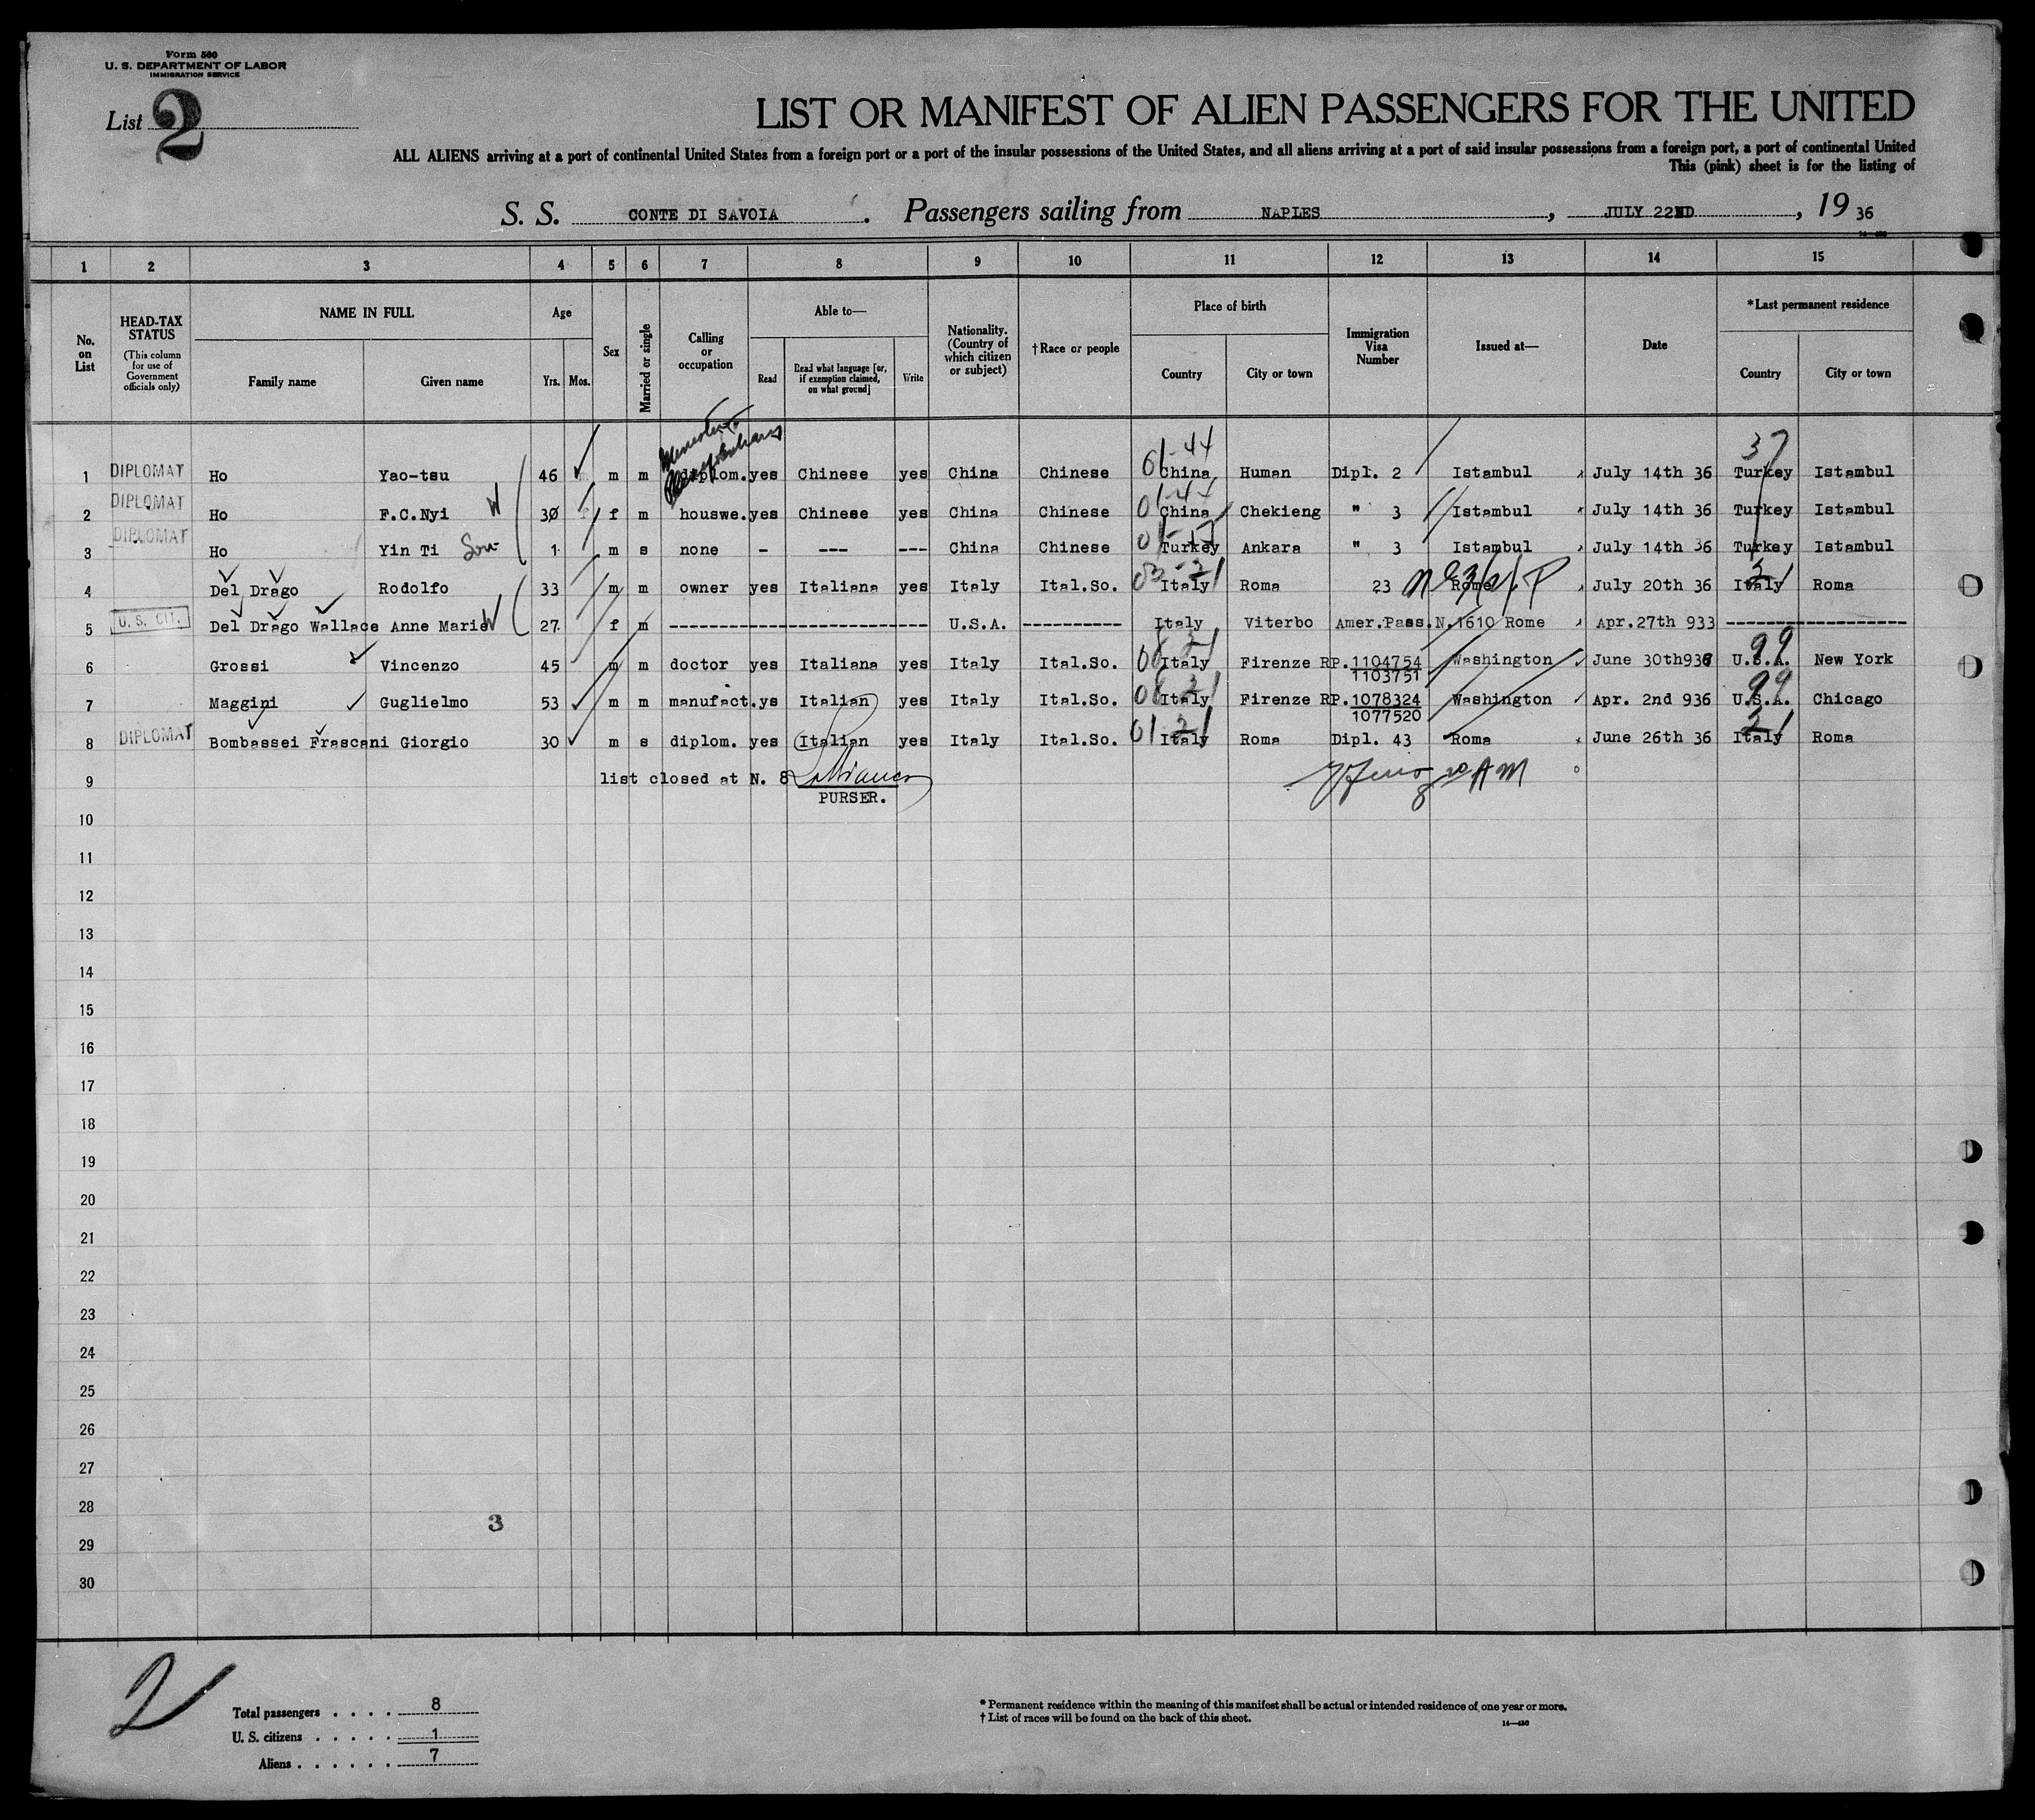 Form 500
U. S. DEPARTMENT OF LABOR
IMMIGRATION SERVICE
List 2
LIST OR MANIFEST OF ALIEN PASSENGERS FOR THE UNITED
ALL ALIENS arriving at a port of continental United States from a foreign port or a port of the insular possessions of the United States, and all aliens arriving at a port of said insular possessions from a foreign port, a port of continental United
This (pink) sheet is for the listing of
S. S. CONTE DI SAVOIA. Passengers sailing from NAPLES, JULY 22ND, 19 36
1 2 3 4 5 6 7 8 9 10 11 12 13 14 15
No. on List
HEAD-TAX STATUS (This column for use of Government officials only)
NAME IN FULL
Family name Given name
Age
Yrs. Mos.
Sex
Married or single
Calling or occupation
Able to—
Read Read what language [or, if exemption claimed, on what ground] Write
Nationality. (Country of which citizen or subject)
†Race or people
Place of birth
Country City or town
Immigration Visa Number
Issued at—
Date
*Last permanent residence
Country City or town
01-44 37
1 DIPLOMAT Ho Yao-tsu 46 m m diplom. yes Chinese yes China Chinese China Human Dipl. 2 Istambul July 14th 36 Turkey Istambul
2 DIPLOMAT Ho F.C.Nyi W 30 f m houswe. yes Chinese yes China Chinese 01-44 China Chekieng " 3 Istambul July 14th 36 Turkey Istambul
3 DIPLOMAT Ho Yin Ti Son 1 m s none - --- --- China Chinese Turkey Ankara " 3 Istambul July 14th 36 Turkey Istambul
4 Del Drago Rodolfo 33 m m owner yes Italiana yes Italy Ital.So. Italy Roma 23 Rome July 20th 36 Italy Roma
5 U.S. CIT. Del Drago Wallace Anne Marie W 27 f m ---------- U.S.A. ---------- Italy Viterbo Amer.Pass.N.1610 Rome Apr.27th 933 ----------
6 Grossi Vincenzo 45 m m doctor yes Italiana yes Italy Ital.So. Italy Firenze RP.1104754 Washington June 30th936 99 U.S.A. New York
1103751
7 Maggini Guglielmo 53 m m manufact. ys Italian yes Italy Ital.So. Italy Firenze RP.1078324 Washington Apr. 2nd 936 99 U.S.A. Chicago
1077520
8 DIPLOMAT Bombassei Frascani Giorgio 30 m s diplom. yes Italian yes Italy Ital.So. 01 21 Italy Roma Dipl. 43 Roma June 26th 36 21 Italy Roma
9 list closed at N. 8
PURSER.
10
11
12
13
14
15
16
17
18
19
20
21
22
23
24
25
26
27
28
3
29
30
2
Total passengers . . . . 8
U. S. citizens . . . . . 1
Aliens . . . . . . 7
* Permanent residence within the meaning of this manifest shall be actual or intended residence of one year or more.
† List of races will be found on the back of this sheet.